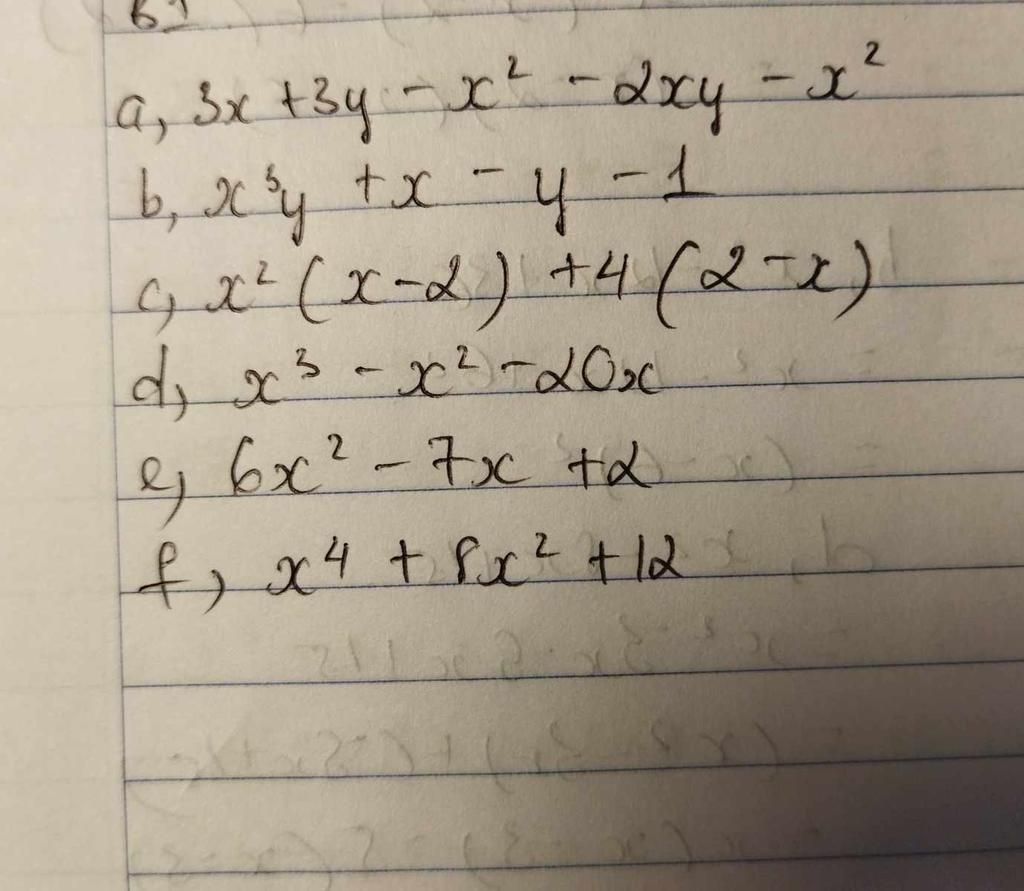 a, 3x + 3y - x² - 2xy - x²
b, x³y + x - y - 1
c, x² (x - 2) + 4 (2 - x)
d, x³ - x² - 20x
e, 6x² - 7x + 2
f, x⁴ + 8x² + 12